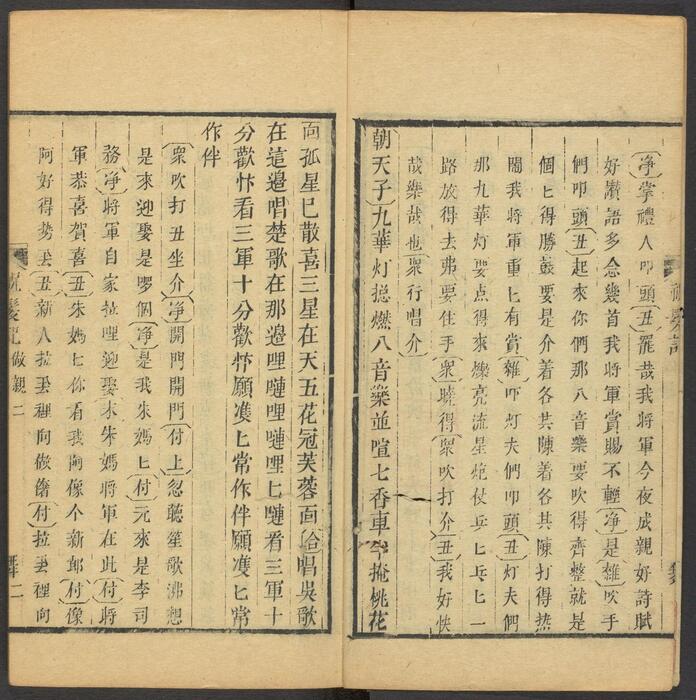 淨掌禮人叩頭丑罷哉我將軍今夜成親好詩賦
好讚語多念幾首我將軍賞賜不輕淨是雜吹手
們叩頭丑起來你們那八音樂要吹得齊整就是
個匕得勝鼓要是介着各其隊着各其隊打得热
閙我將軍重匕有賞雜吓灯夫們叩頭丑灯夫們
那九華灯要点得來爍亮流星炮仗乒匕乓匕一
路放得去弗要住手衆曉得衆吹打介丑我好快
哉樂哉也衆行唱介
朝天子九華灯捴燃八音樂並喧七香車掩桃花
面孤星已散喜三星在天五花冠芙蓉面合唱吳歌
在這邉唱楚歌在那邉哩嗹哩嗹哩匕嗹看三軍十
分歡忭看三軍十分歡忭願凄匕常作伴願凄匕常
作伴
衆吹打丑坐介淨開門開門付上忽聽笙歌沸想
是來迎娶是啰個淨是我朱媽匕付元來是李司
務淨將軍自家拉哩迎娶末朱媽將軍在此付將
軍恭喜賀喜丑朱媽匕你看我阿像个新郎付像
阿好得势丟丑新人拉丟裡向做僭付拉丟裡向
祝髪記
做親
二